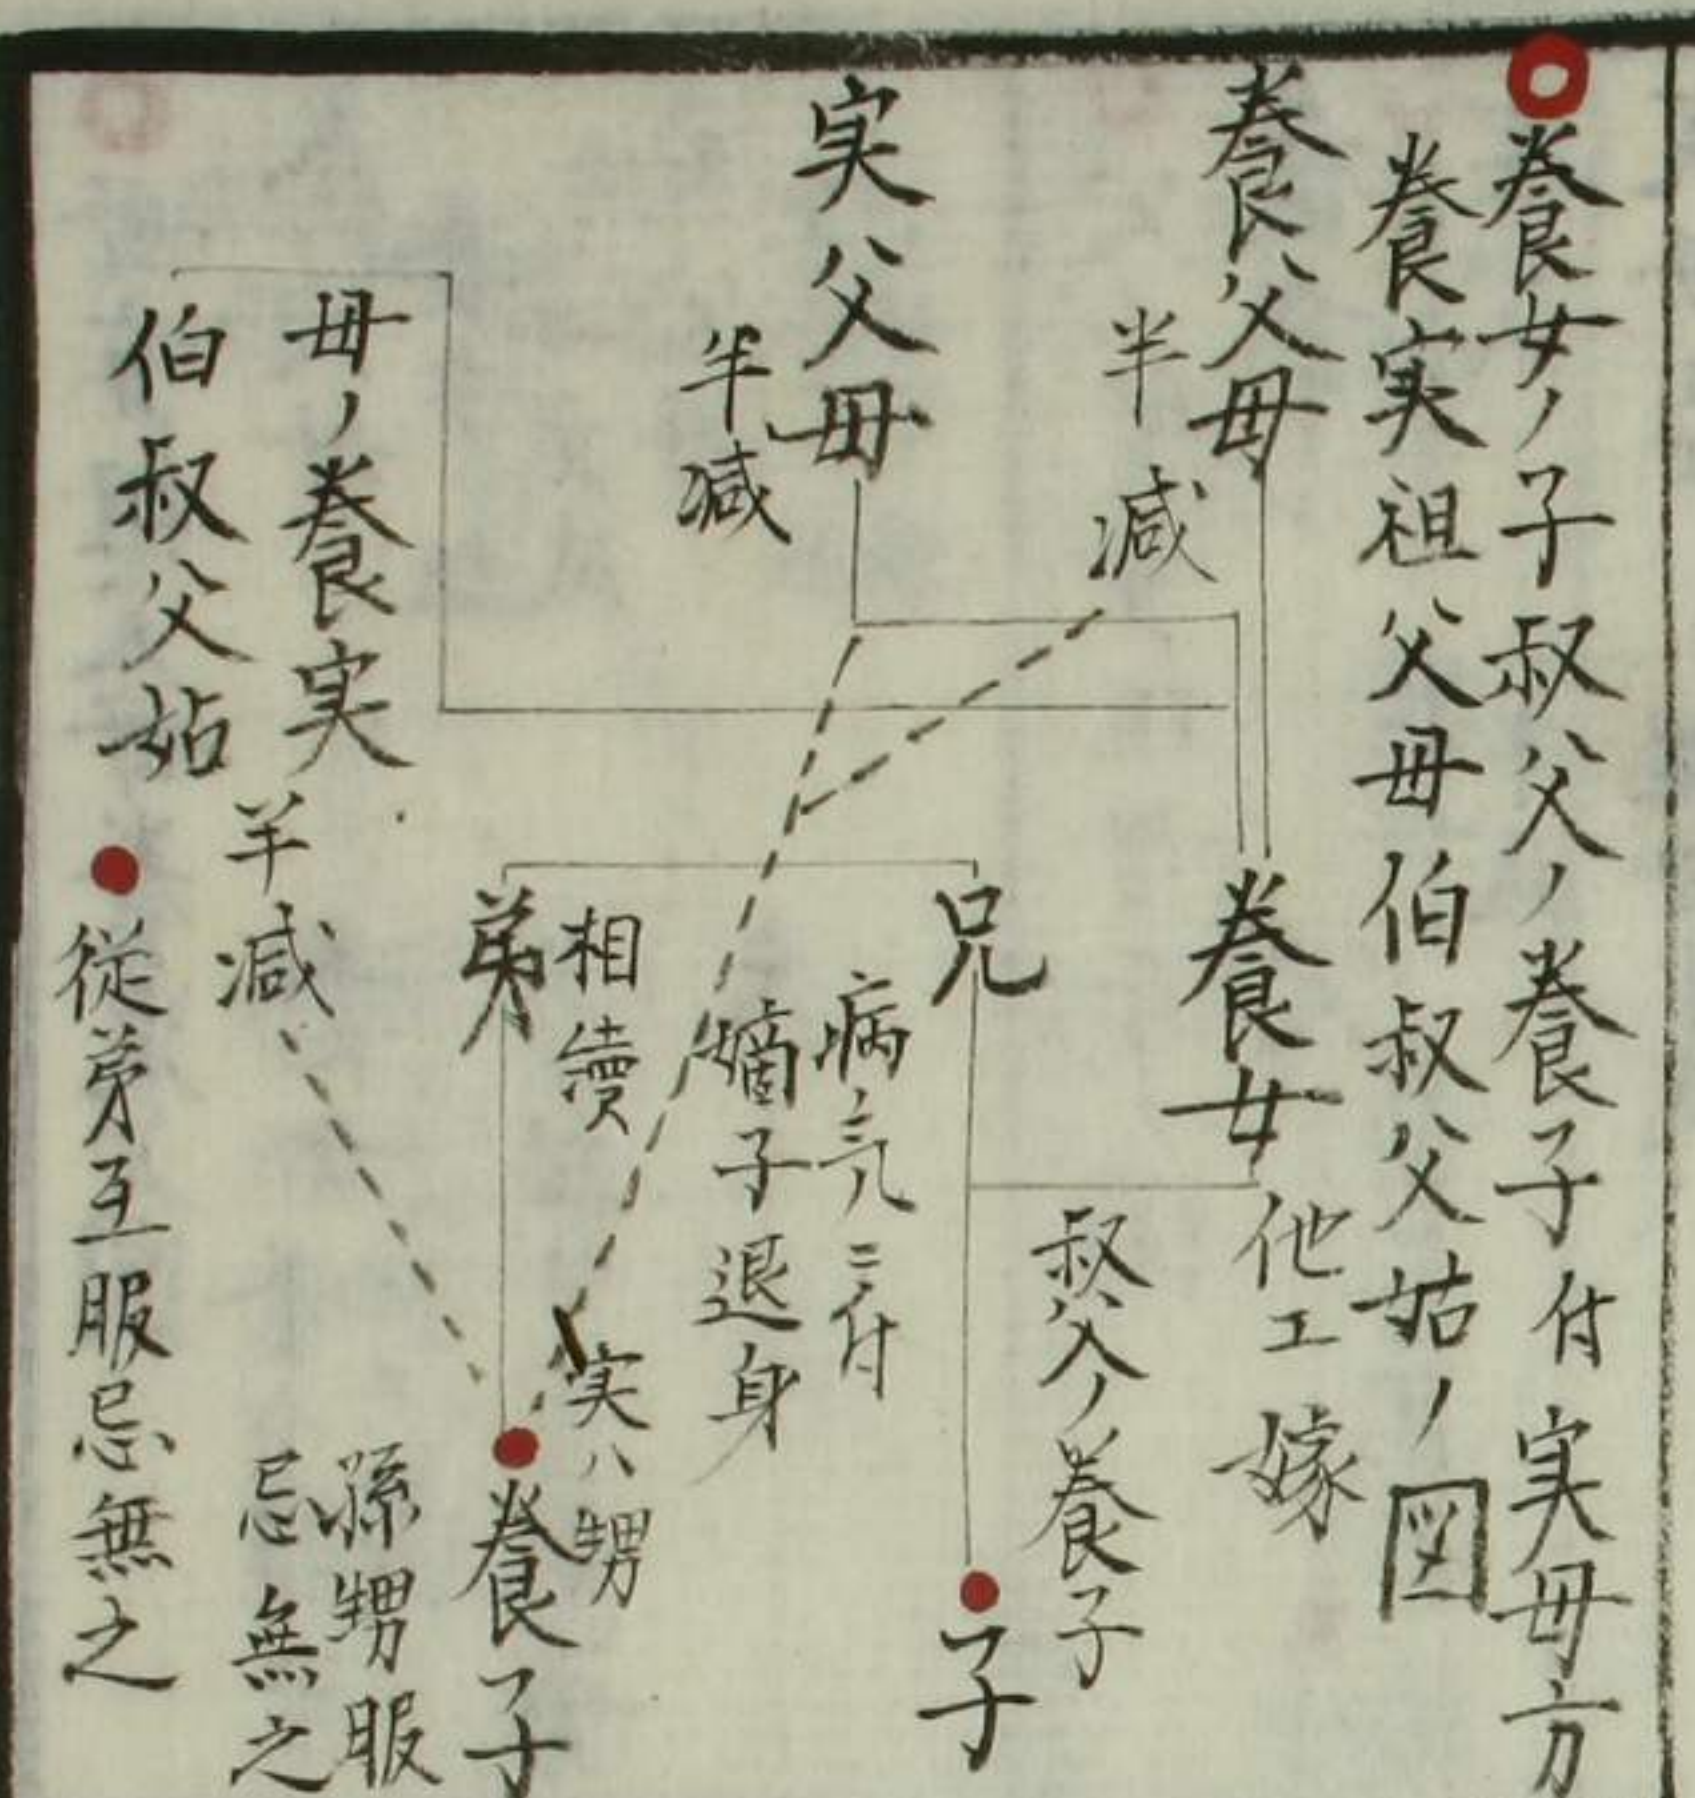 養女ノ子叔父ノ養子付実母方
養実祖父母伯叔父姑ノ図
養父母
半減
実父母
半減
母ノ養実
伯叔父姑
半減
養女
他エ嫁
叔父ノ養子
兄
病気ニ付
嫡子退身
相續
弟
子
実ハ甥
養子
孫甥服
忌無之
従弟互服忌無之